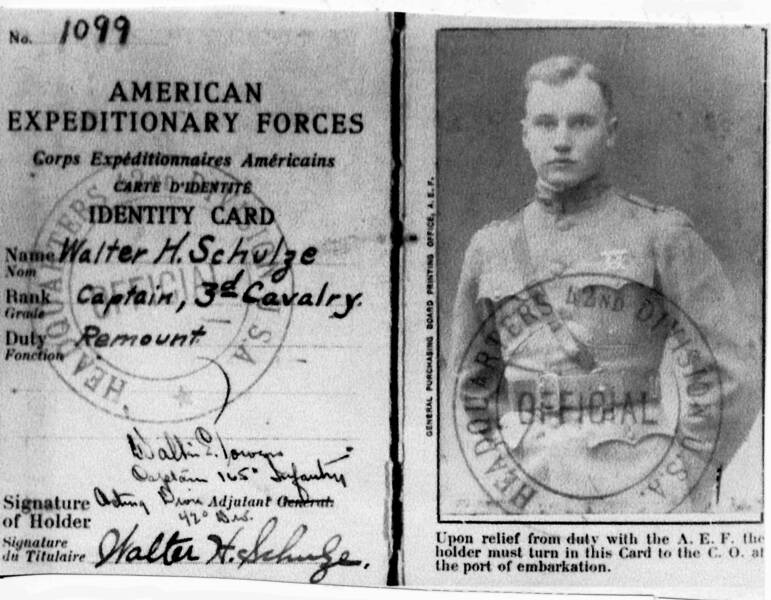 No. 1099
AMERICAN
EXPEDITIONARY FORCES
Corps Expéditionnaires Américains
CARTE D'IDENTITÉ
IDENTITY CARD
Name Walter H. Schulze
Nom
Rank Captain, 3d Cavalry.
Grade
Duty Remount
Fonction
HEADQUARTERS 42ND DIVISION U.S.A.
OFFICIAL
Captain 165° Infantry
Acting Divn Adjutant General.
42° Div.
Signature
of Holder
Signature
du Titulaire
Walter H. Schulze.
GENERAL PURCHASING BOARD PRINTING OFFICE, A. E. F.
HEADQUARTERS 42ND DIVISION U.S.A.
OFFICIAL
Upon relief from duty with the A. E. F. the
holder must turn in this Card to the C. O. at
the port of embarkation.